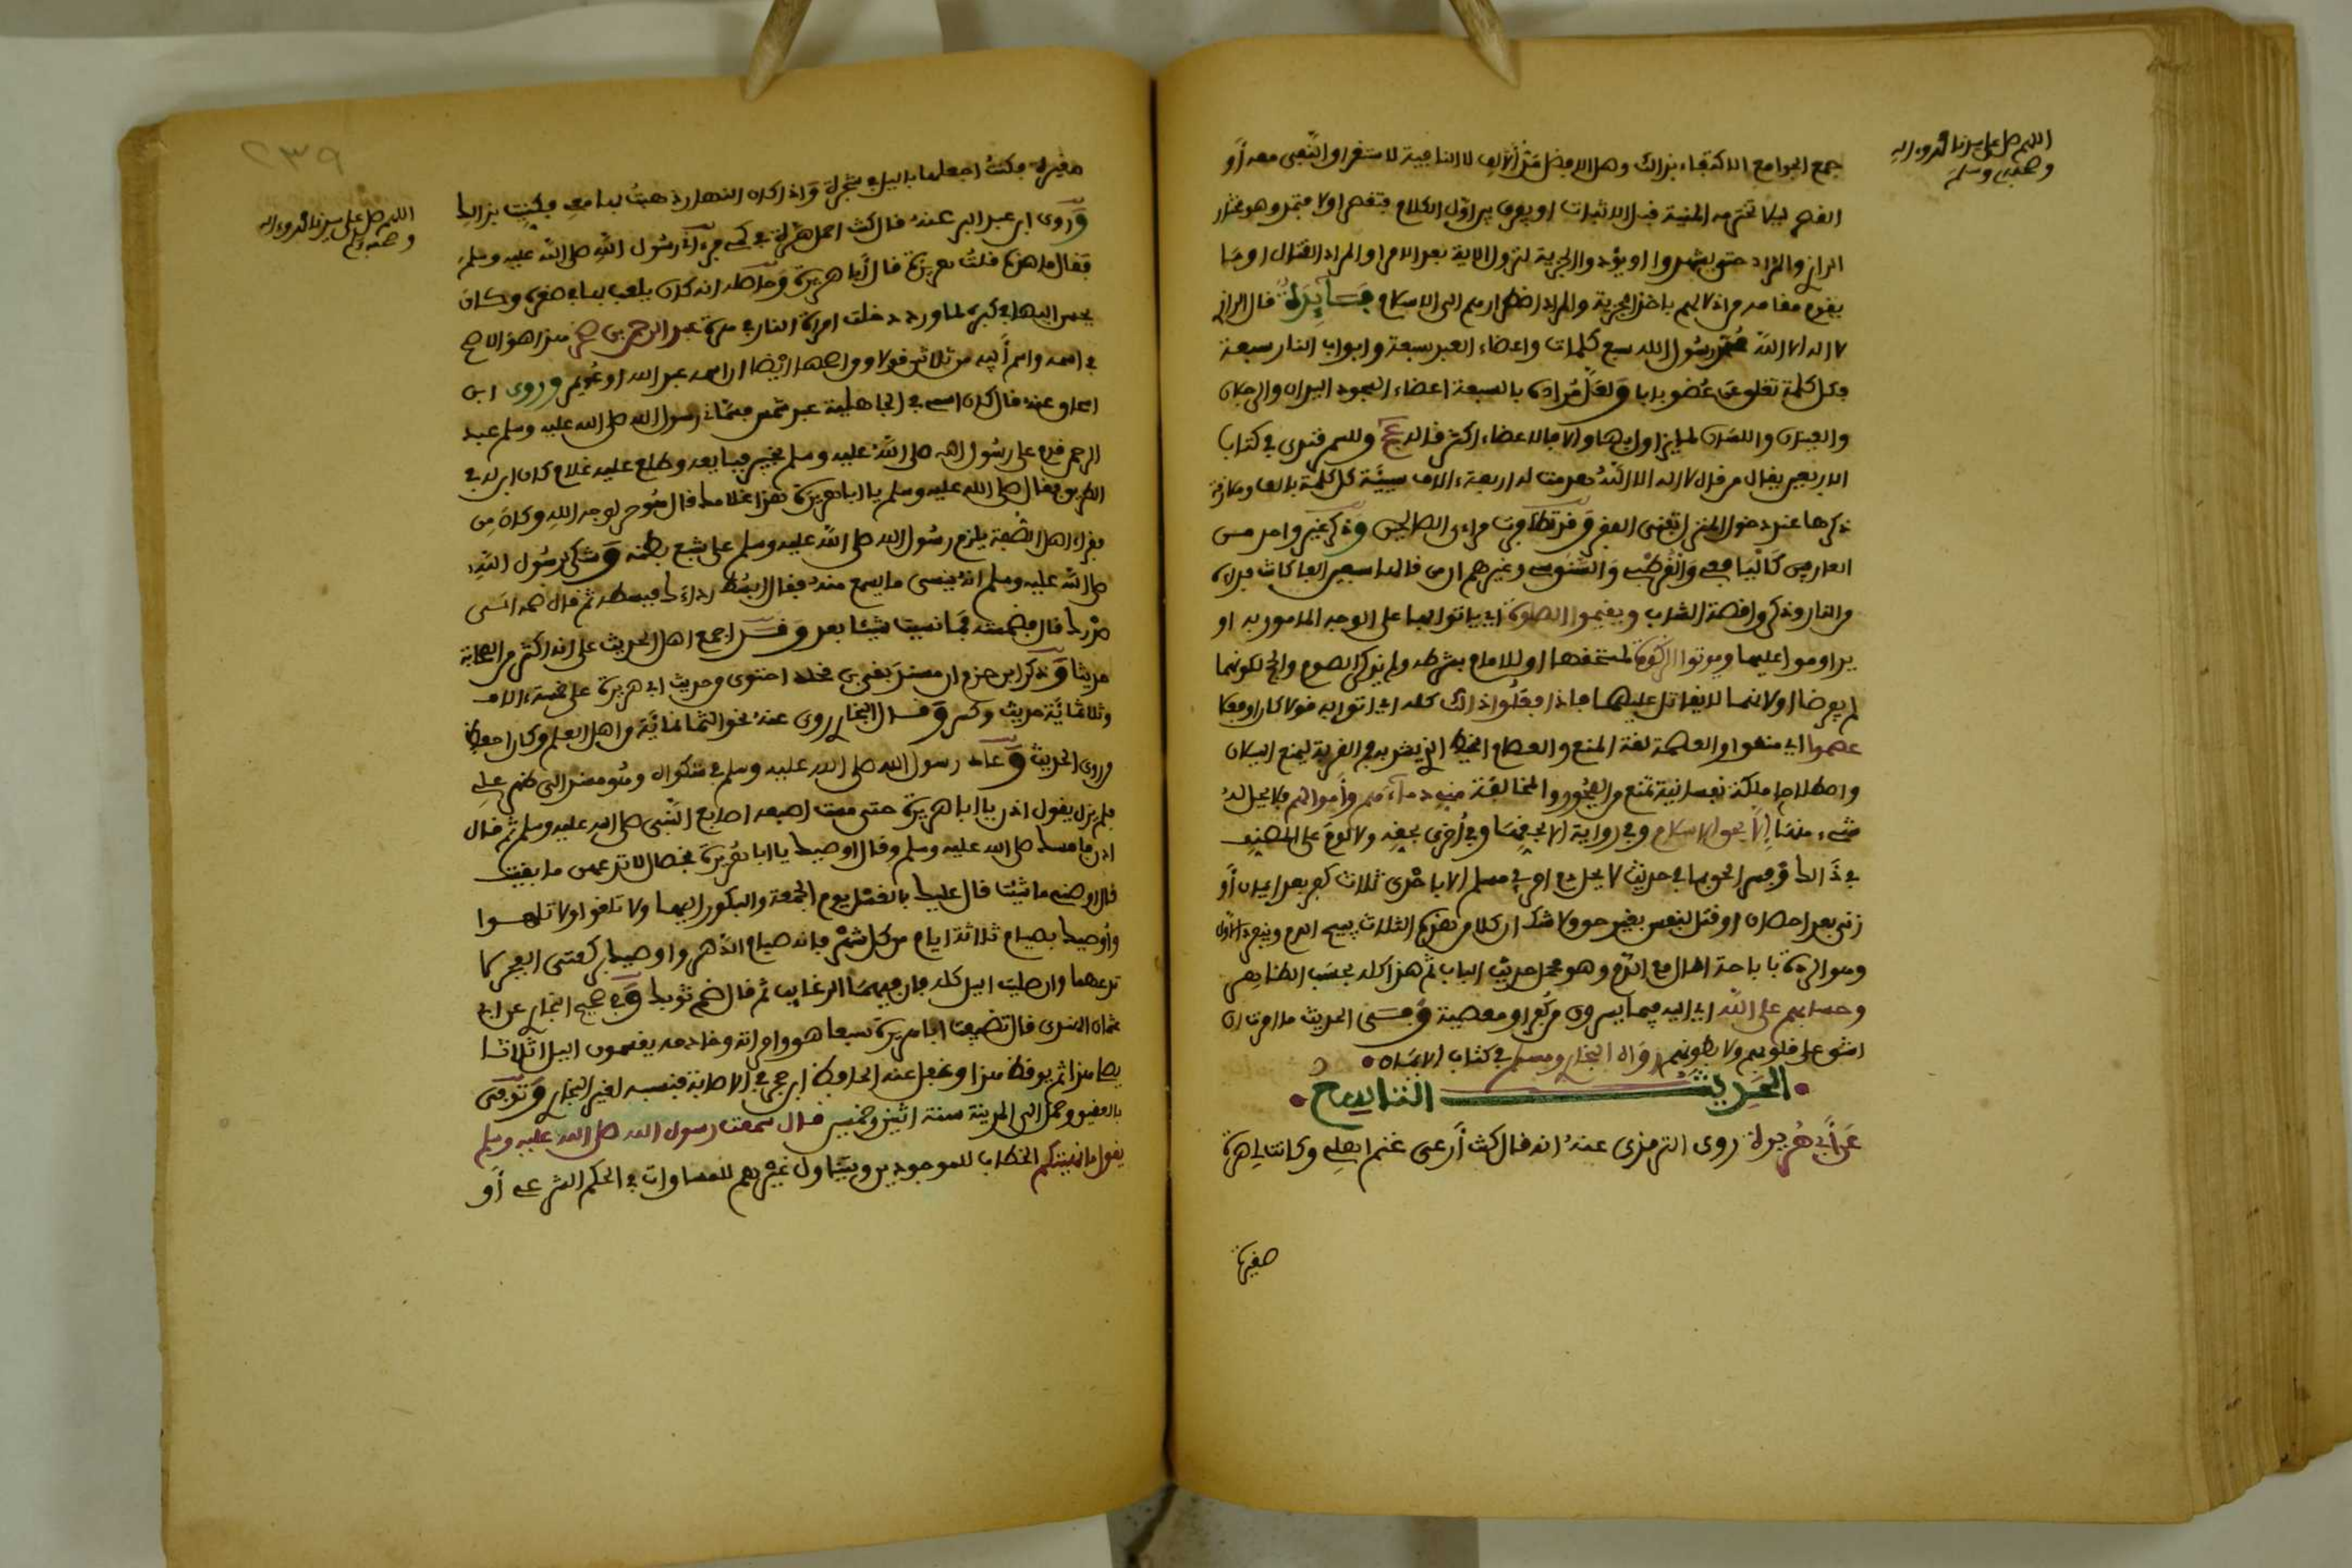 اللهم صل على سيدنا محمد وءاله
وصحبه وسلم
جمع الجوامع الاكتفاء بذالك وهل الافضل مد ألف لا النافية لاستغراق النفي معه أو
القصر ليلا تخترمه المنية قبل الاثبات او يفرق بين اول الكلام فتقصر اولا فتمد وهو مختار
الرازي والمراد حتى يشهدوا او يؤدوا الجزية لنزول الاية بعد الامر او المراد القتال او ما
يقوم مقامه من اذلالهم باخذ الجزية والمراد اضطرارهم الى الاسلام فــايدة قال الرازي
لا اله الا الله محمد رسول الله سبع كلمات واعضاء العبد سبعة وابواب النار سبعة
فكل كلمة تغلق عن عضو بابا ولعل مراده بالسبعة اعضاء السجود اليدان والرجلان
والعينان واللسان والا فالاعضاء اكثر
الاربعين يقال من قال لا اله الا الله هدمت له اربعة ءالاف سيئة كل كلمة بالف
ذكرها عند دخول المنزل تنفي الفقر
العارفين كاليافعي والقرطبي والسنوسي وغيرهم ان من قالها سبعين الفا كانت فداءه
من النار وذكروا قصة الشاب ويقيموا الصلوة اي ياتوا بها على الوجه المامور به او
يداوموا عليها ويوتوا الزكوة لمستحقها او للامام بشرطه ولم يذكر الصوم والحج لكونهما
لم يفرضا او لانهما لا يقاتل عليهما فاذا فعلوا ذالك كله اي اتوا به قولا كان او فعلا
عصموا اي منعوا والعصمة لغة المنع والعصام الخيط الذي يشد به فم القربة ليمنع السيلان
واصطلاحا ملكة نفسانية تمنع من الفجور والمخالفة مني دماءهم وأموالهم فلا يحل له
شيء منها إلا بحق الاسلام وفي رواية الا بحقها وفي أخرى بحقه ولا لوم على المصنف
في ذالك وفسر الحق بها في حديث لا يحل دم امرئ مسلم الا باحدى ثلاث كفر بعد ايمان أو
زنى بعد احصان او قتل لنفس بغير حق ولا شك ان كلا من هذه الثلاث يبيح الدم
وهو الردة باباحة المال مع الدم وهو محل حديث الباب ثم هذا كله بحسب الظاهر
وحسابهم على الله اي اليه فيما يسرون من كفر او معصية
اشق على قلوبهم ولا بطونهم رواه البخاري ومسلم في كتاب الايمان
الحديث التاسع
عن أبي هريرة روى الترمذي عنه انه قال كنت أرعى غنم اهلي وكانت لي هرة
صغيرة
٢٣٩
اللهم صل على سيدنا محمد وءاله
وصحبه وسلم
صغيرة فكنت اجعلها بالليل في شجرة واذا كان النهار ذهبت بها معي فكنيت بذالك
وروى ابن عبد البر عنه قال كنت احمل هرة في كمي فرءاني رسول الله صلى الله عليه وسلم
فقال ما هذه قلت هريرة قال أبا هريرة انه كان يلعب بها في صغره وكان
يحسن اليها في كبره لما ورد دخلت امراة النار في هرة عبد الرحمن بن صخر هذا هو الاصح
في اسمه واسم أبيه من ثلاثين قولا ومن اصحها ايضا ان اسمه عبد الله او عمير وروى ابن
اسحاق عنه قال كان اسمي في الجاهلية عبد شمس فسماني رسول الله صلى الله عليه وسلم عبد
الرحمن قدم على رسول الله صلى الله عليه وسلم بخيبر فبايعه وطلع عليه غلام كان ابق له في
الطريق فقال صلى الله عليه وسلم يا ابا هريرة هذا غلامك قال هو حر لوجه الله وكان من
فقراء اهل الصفة يلزم رسول الله صلى الله عليه وسلم على شبع بطنه وشكى لرسول الله
صلى الله عليه وسلم انه ينسى ما يسمع منه فقال ابسط رداءك فبسطه ثم قال ضمه الى
صدرك قال فضممته فما نسيت شيئا بعد وقــد اجمع اهل الحديث على انه اكثر الصحابة
حديثا وذكر ابن حزم ان مسند بقي بن مخلد احتوى من حديث ابي هريرة على خمسة ءالاف
وثلاثمائة حديث وكسر وقــال البخاري روى عنه نحو الثمانمائة من اهل العلم وكان احفظ
من روى الحديث وعاده رسول الله صلى الله عليه وسلم في شكواه
فلم يزل يقول ادن يا ابا هريرة حتى مست اصبعه اصابع النبي صلى الله عليه وسلم ثم قال
صلى الله عليه وسلم وقال اوصيك يا ابا هريرة بخصال لا تدعهن ما بقيت
قال اوصني ما شئت قال عليك بالغسل يوم الجمعة والبكور اليها ولا تلغوا ولا تلهــوا
وأوصيك بصيام ثلاثة ايام من كل شهر فانه صيام الدهر واوصيك بركعتي الفجر لا
تدعهما وان صليت الليل كله فان فيهما الرغايب ثم قال ضم ثوبك وفي صحيح البخاري عن ابي
عثمان النهدي قال تضيفت ابا هريرة سبعا فكان هو وامراته وخادمه يقتسمون الليل اثلاثا
يصلي هذا ثم يوقظ هذا وغفل عنه الحافظ ابن حجر في الاصابة فنسبه لغير البخاري وتوفي
بالعقيق وحمل الى المدينة سنة اثنين وخمسين قــال سمعت رسول الله صلى الله عليه وسلم
يقول ما نهيتكم الخطاب للموجودين ويتناول غيرهم للمساوات في الحكم الشرعي أو